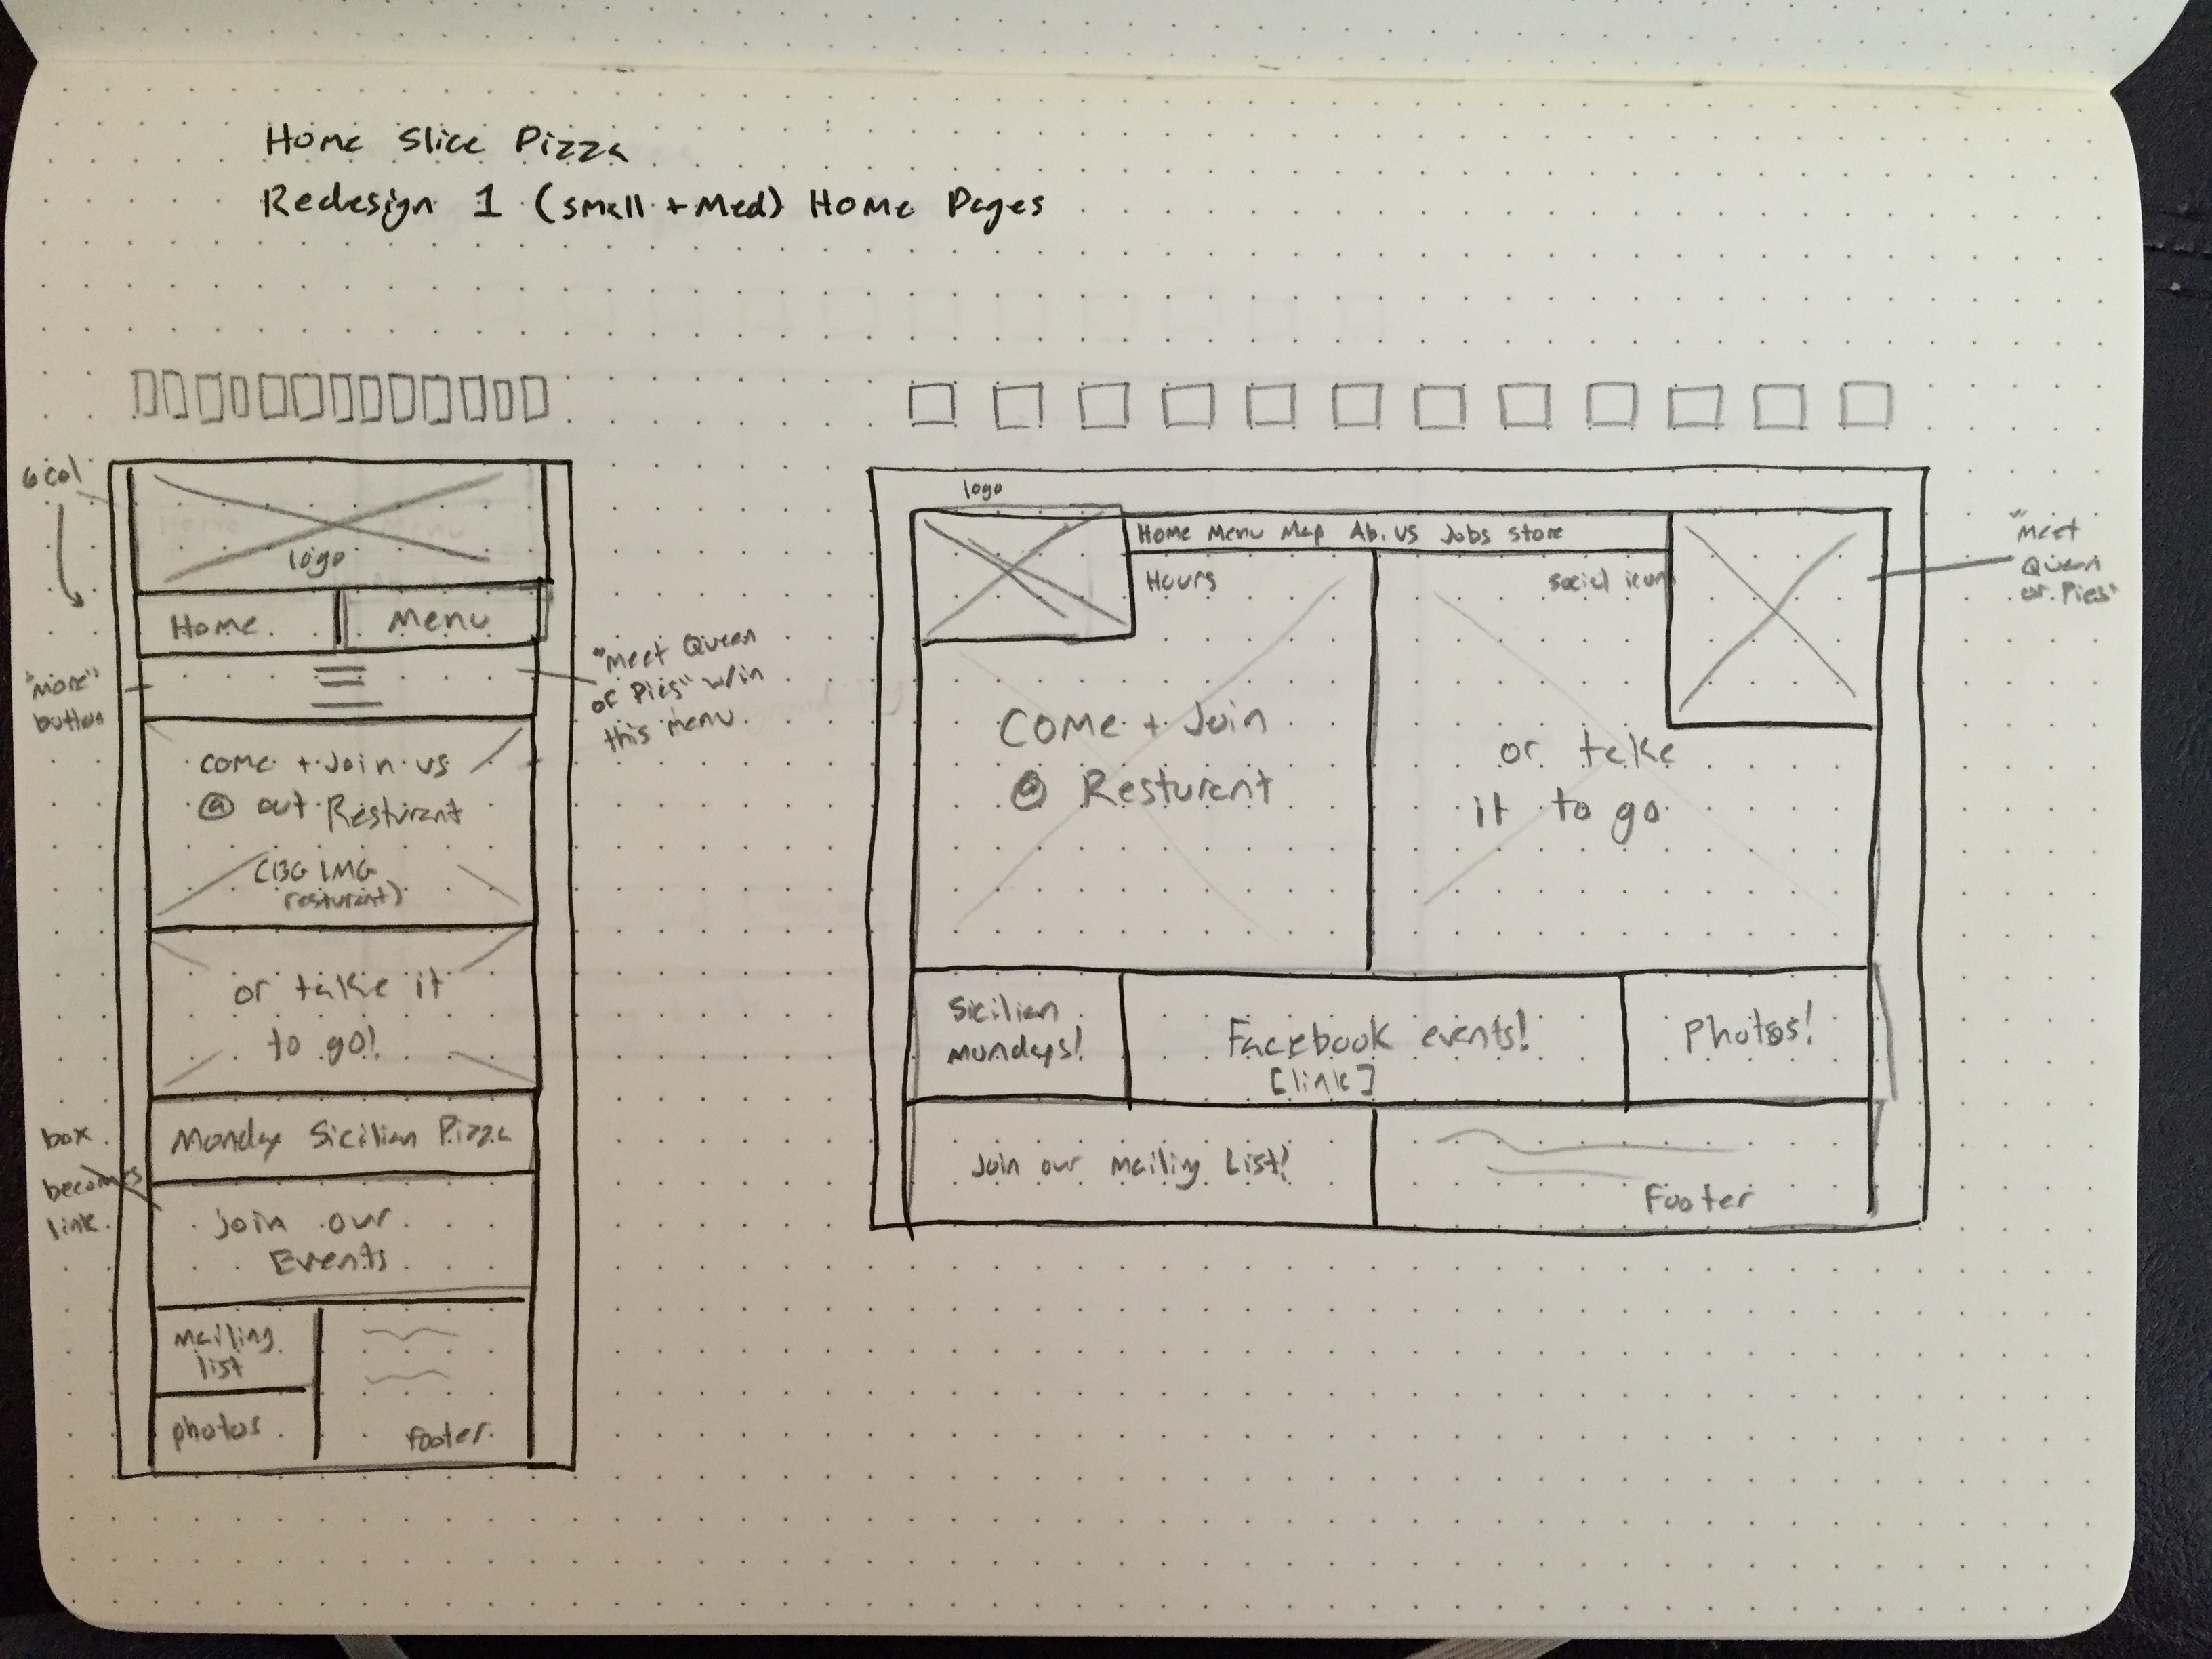 Home Slice Pizza
Redesign 1 (small + Med) Home Pages
6 col
logo
Home
Menu
"more"
button
"Meet Queen
of Pies" w/in
this menu
come + Join us
@ out Resturant
(BG IMG
resturant)
or take it
to go!
Monday Sicilian Pizza
box
becomes
link
Join our
Events
mailing
list
photos
footer
logo
Home Menu Map Ab. US Jobs Store
Hours
social icons
"Meet
Queen
of Pies"
Come + Join
@ Resturant
or take
it to go
Sicilian
Mondays!
Facebook events!
[link]
Photos!
Join our Mailing List!
Footer